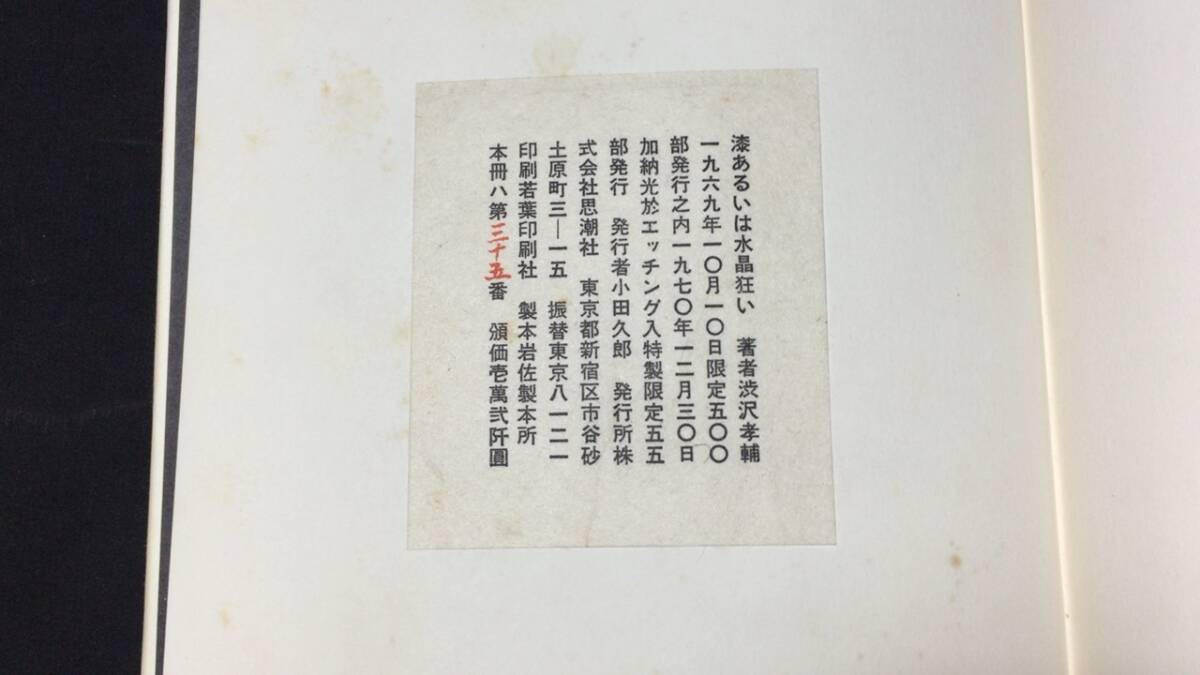 漆あるいは水晶狂い　著者渋沢孝輔
一九六九年一〇月一〇日限定五〇〇
部発行之内一九七〇年一二月三〇日
加納光於エッチング入特製限定五五
部発行　発行者小田久郎　発行所株
式会社思潮社　東京都新宿区市谷砂
土原町三―一五　振替東京八一二一
印刷若葉印刷社　製本岩佐製本所
本冊ハ第三十五番　頒価壱萬弐阡圓